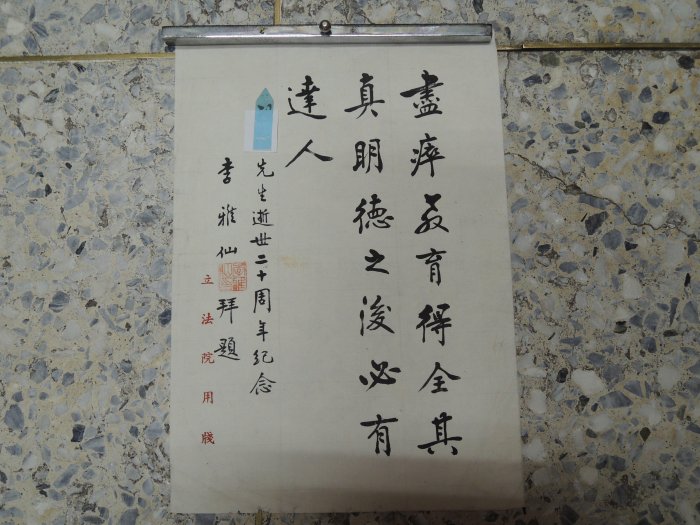 盡瘁教育得全其
真明德之後必有
達人
先生逝世二十周年紀念
李雅仙 拜題
立法院用牋